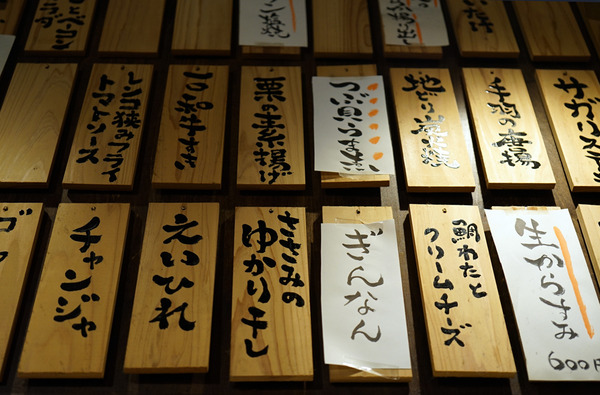 ベーコン
レンコ挟みフライ
トマトソース
栗の素揚げ
つぶ貝うま煮
地どり炭焼
手羽の唐揚
サガリステ
チャンジャ
えいひれ
ささみの
ゆかり干し
ぎんなん
鯛わたと
クリームチーズ
生からすみ
600円